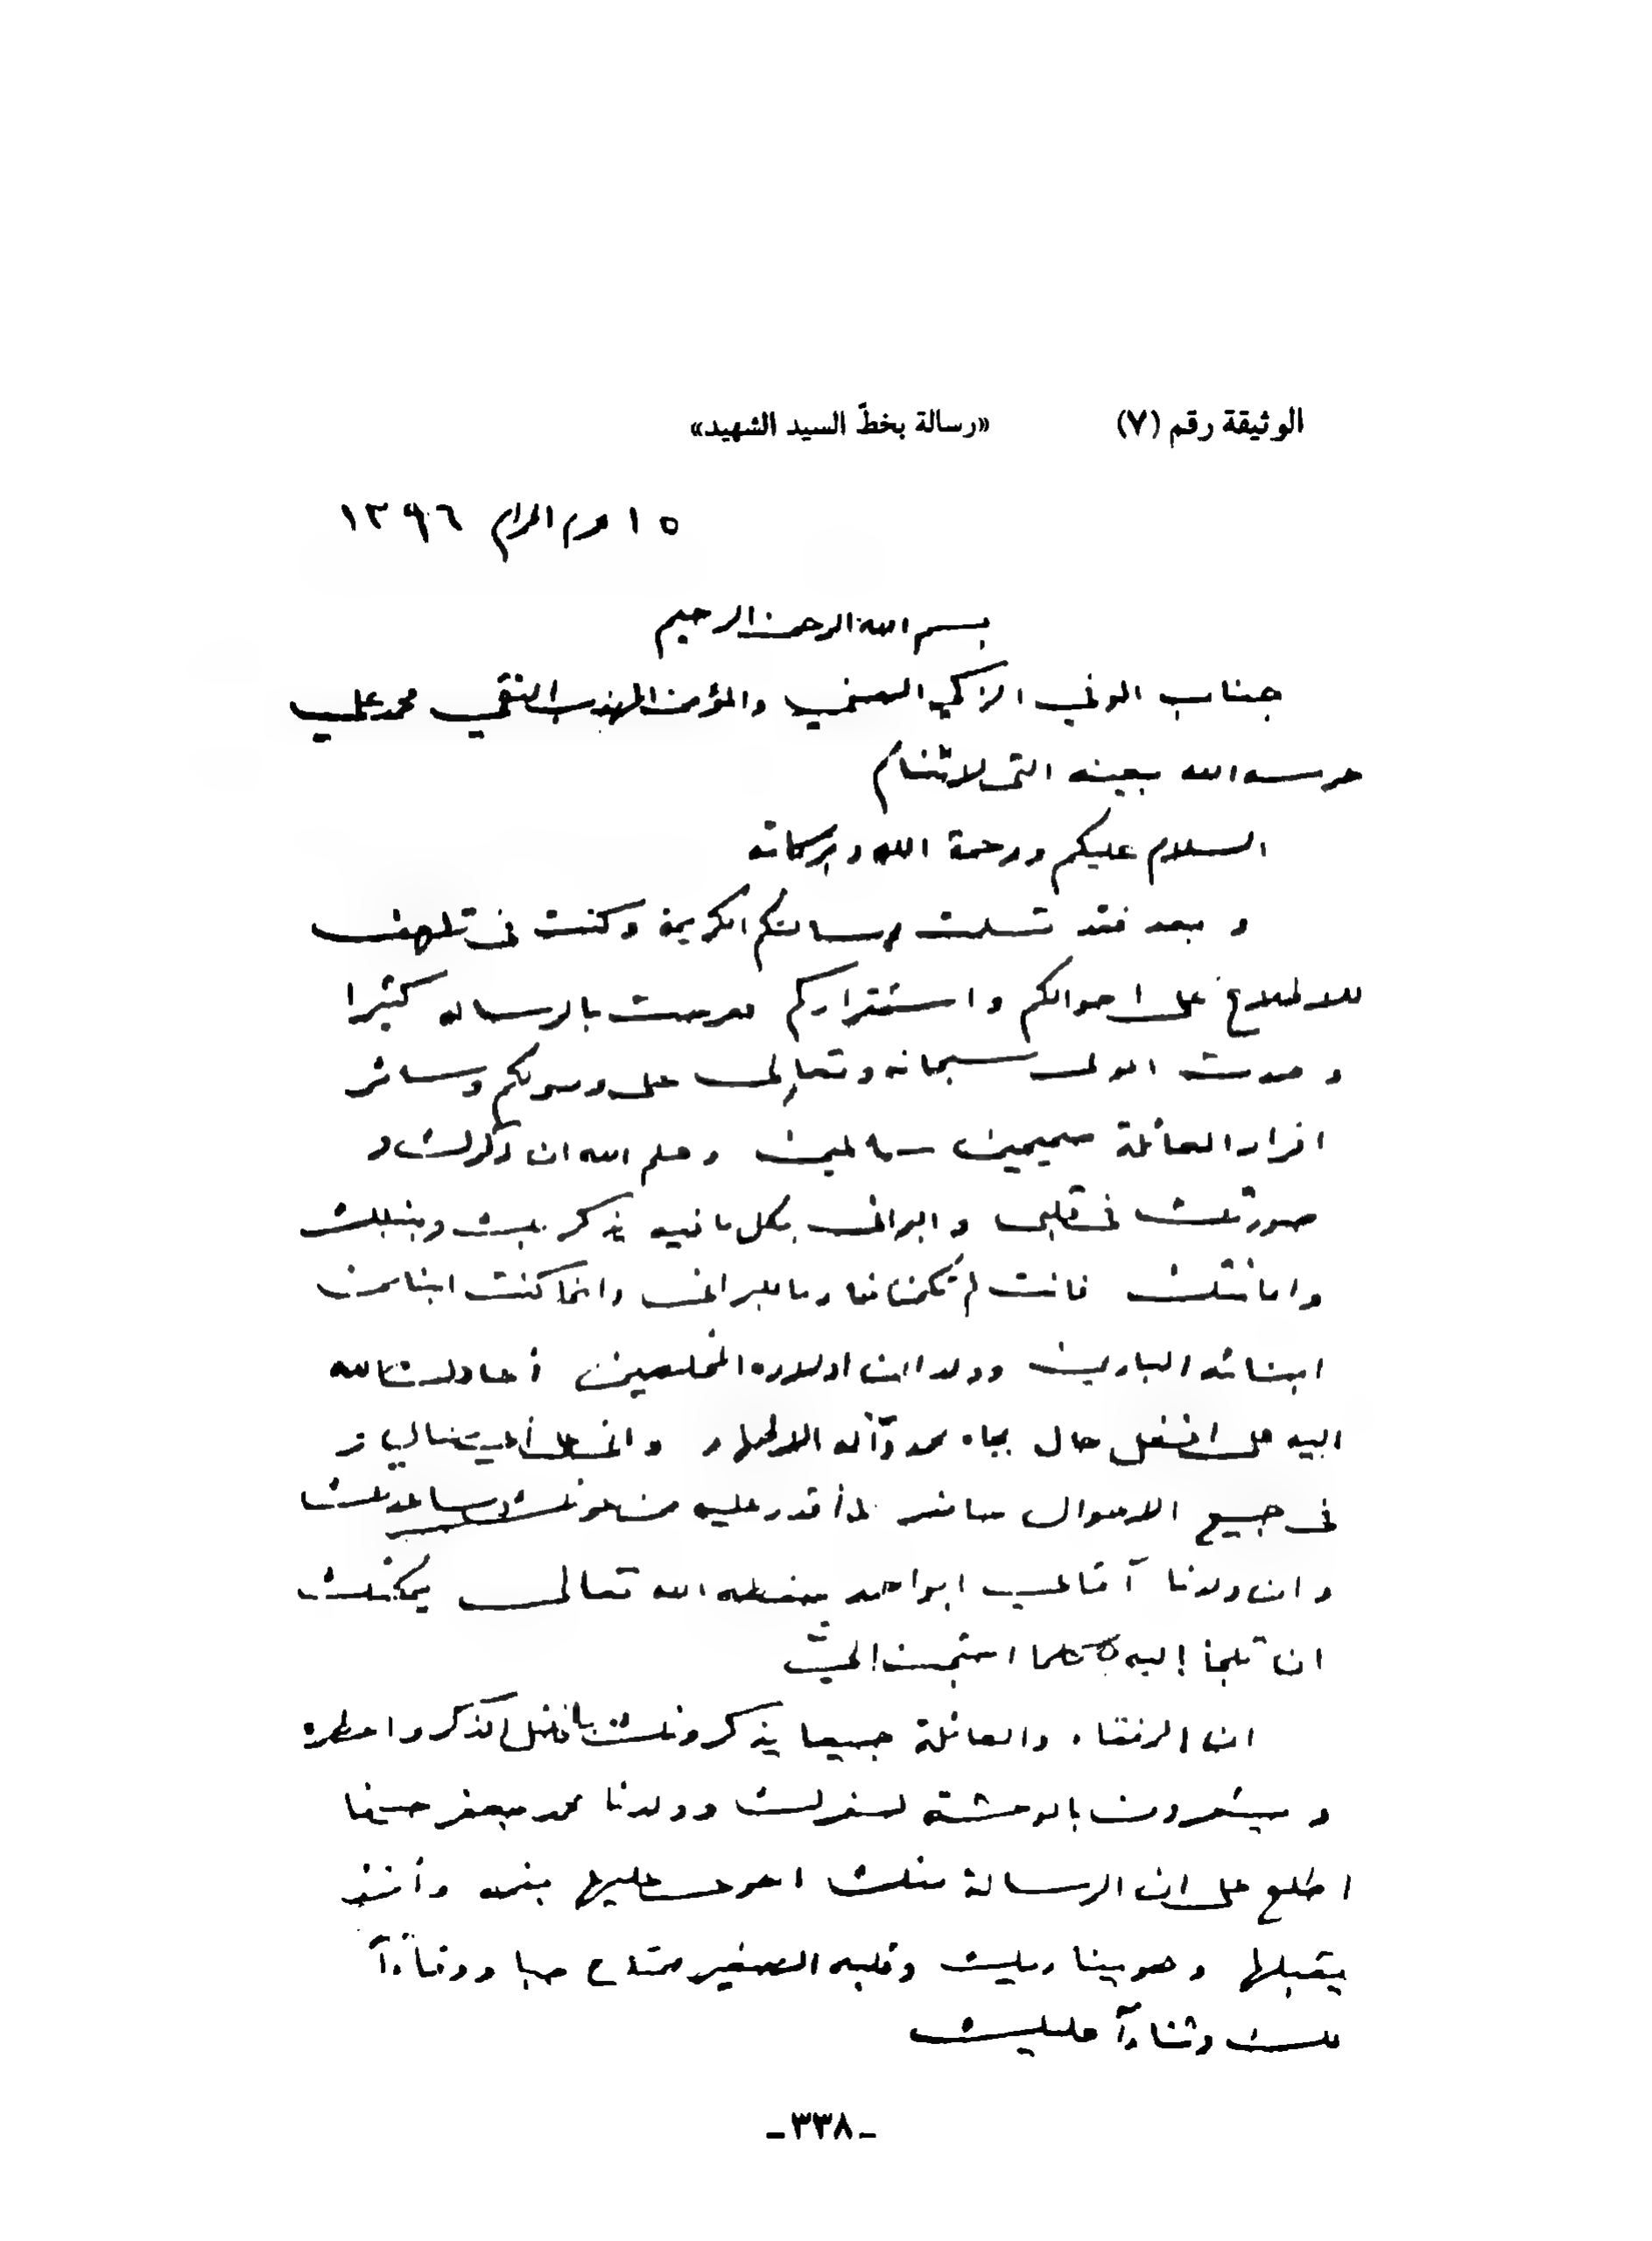 الوثيقة رقم (٧) «رسالة بخطّ السيد الشهيد»
١٥ محرم الحرام ١٣٩٦
بسم الله الرحمن الرحيم
جناب الوفي الزكي الصفي والمؤمن المهذب التقي محمد علي
حرسه الله بعينه التي لا تنام
السلام عليكم ورحمة الله وبركاته
و بعد فقد تسلمت رسالتكم الكريمة وكنت في تلهف
للاطلاع على احوالكم واستقراركم ففرحت بالرسالة كثيرا
وحمدت المولى سبحانه وتعالى على وصولكم وسائر
افراد العائلة صحيحين سالمين وعلم الله ان ذكراك و
صورتك في قلبي والبراني بكل ما فيه يذكر بك وبنبلك
وامانتك فانت لم تكن خادما للبراني وانما كنت ابنا من
ابنائه البارين وولدا من اولاده المخلصين أعادك الله
اليه على افضل حال بجاه محمد وآله الاطهار واني على أي حال
في جميع الاحوال حاضر لما أقدر عليه من عونك ومساعدتك
وان ولدنا آقاي ابو احمد حفظه الله تعالى يمكنك
ان تلجأ إليه كلما احتجت إلى
ان الرفقاء والعائلة جميعا يذكرونك بافضل الذكر واعطره
ويشعرون بالوحشة لسفرك وولدنا محمد جعفر حينما
اطلع على ان الرسالة منك اهوى عليها بفمه وأخذ
يقبلها وهو يناديك وقلبه الصغير ممتلئ حبا ووفاءاً
لك وثناءاً عليك
ـ٣٣٨ـ